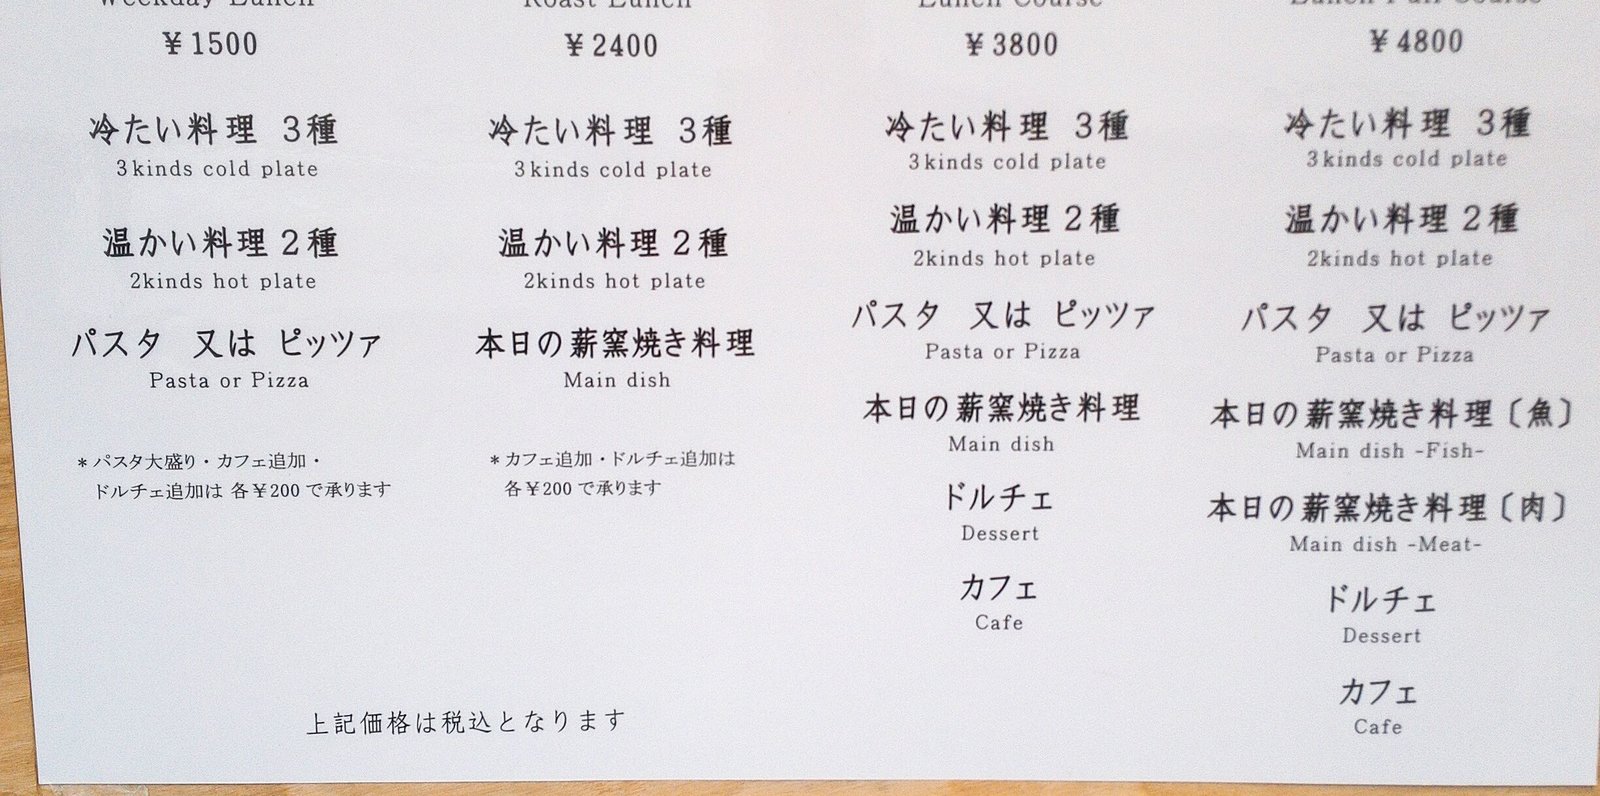 Weekday Lunch
¥1500
冷たい料理 3種
3kinds cold plate
温かい料理 2種
2kinds hot plate
パスタ 又は ピッツァ
Pasta or Pizza
＊パスタ大盛り・カフェ追加・
ドルチェ追加は 各¥200 で承ります
Roast Lunch
¥2400
冷たい料理 3種
3kinds cold plate
温かい料理 2種
2kinds hot plate
本日の薪窯焼き料理
Main dish
＊カフェ追加・ドルチェ追加は
各¥200 で承ります
Lunch Course
¥3800
冷たい料理 3種
3kinds cold plate
温かい料理 2種
2kinds hot plate
パスタ 又は ピッツァ
Pasta or Pizza
本日の薪窯焼き料理
Main dish
ドルチェ
Dessert
カフェ
Cafe
Lunch Full Course
¥4800
冷たい料理 3種
3kinds cold plate
温かい料理 2種
2kinds hot plate
パスタ 又は ピッツァ
Pasta or Pizza
本日の薪窯焼き料理〔魚〕
Main dish -Fish-
本日の薪窯焼き料理〔肉〕
Main dish -Meat-
ドルチェ
Dessert
カフェ
Cafe
上記価格は税込となります